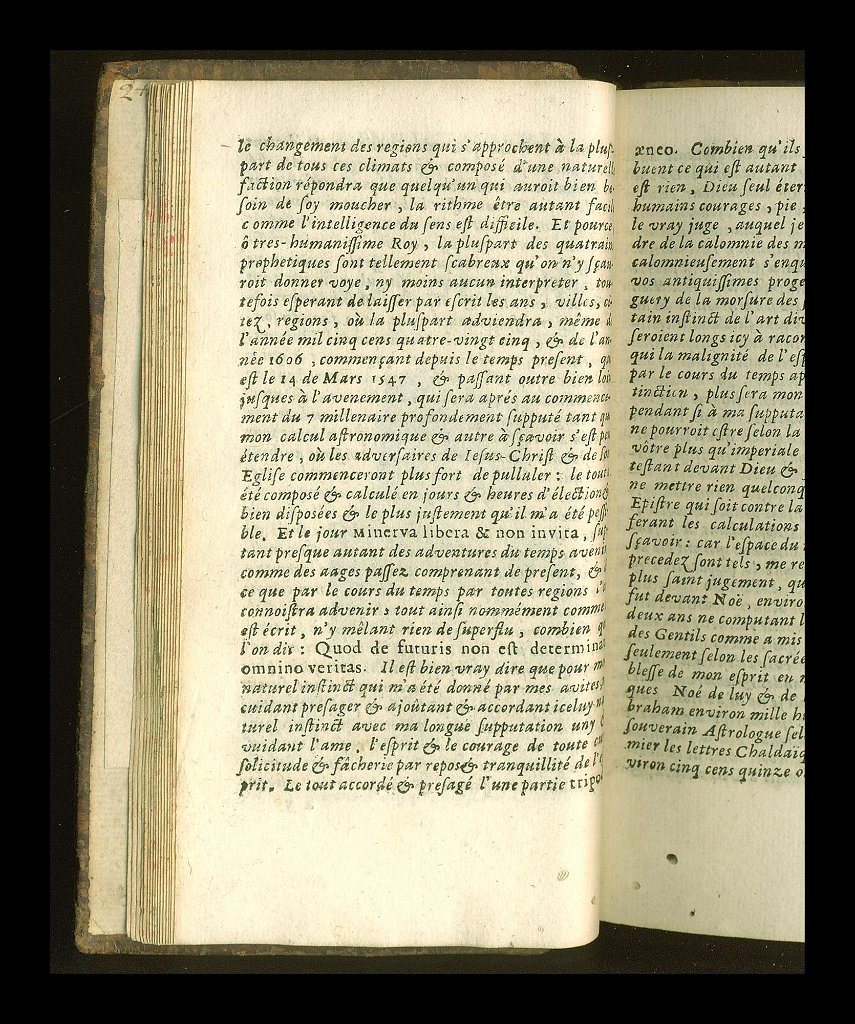 24
le changement des regions qui s'approchent à la pluſ-
part de tous ces climats & composé d'une naturel
faction répondra que quelqu'un qui auroit bien be
ſoin de ſoy moucher, la rithme étre autant facil
comme l'intelligence du ſens eſt difficile. Et pource
ô tres-humaniſſime Roy, la pluſpart des quatrain
prophetiques ſont tellement ſcabreux qu'on n'y ſçau
roit donner voye, ny moins aucun interpreter, tou
tefois eſperant de laiſſer par eſcrit les ans, villes, ci
tez, regions, où la pluſpart adviendra, même d
l'année mil cinq cens quatre-vingt cinq, & de l'an
née 1606, commençant depuis le temps preſent, qu
est le 14 de Mars 1547, & paſſant outre bien loin
juſques à l'avenement, qui ſera aprés au commence
ment du 7 millenaire profondement ſupputé tant q
mon calcul aſtronomique & autre à ſçavoir s'eſt pû
étendre, où les adverſaires de Iesus-Chriſt & de ſon
Egliſe commenceront plus fort de pulluler: le tout
été composé & calculé en jours & heures d'élection &
bien diſposées & le plus juſtement qu'il m'a été poſſi
ble. Et le jour Minerva libera & non invita, ſup
tant preſque autant des adventures du temps aveni
comme des aages paſſez comprenant de preſent, &
ce que par le cours du temps par toutes regions
connoiſtra advenir: tout ainſi nommément comme
eſt écrit, n'y mêlant rien de ſuperflu, combien q
l'on dit: Quod de futuris non eſt determinat
omnino veritas. Il eſt bien vray dire que pour m
naturel inſtinct qui m'a été donné par mes avites,
cuidant preſager & ajoûtant & accordant iceluy na
turel inſtinct avec ma longue ſupputation uny &
vuidant l'ame, l'eſprit & le courage de toute cu
ſolicitude & fâcherie par repos & tranquillité de l'eſ
prit. Le tout accordé & preſagé l'une partie tripo
æneo. Combien qu'ils
buent ce qui eſt autant
eſt rien, Dieu ſeul éter
humains courages, pie,
le vray juge, auquel je
dre de la calomnie des m
calomnieuſement s'enqu
vos antiquiſſimes proge
guery de la morſure des
tain inſtinct de l'art div
ſeroient longs icy à racon
qui la malignité de l'eſp
par le cours du temps ap
tinction, plus ſera mon
pendant ſi à ma ſupputa
ne pourroit eſtre ſelon la
vôtre plus qu'imperiale
teſtant devant Dieu &
ne mettre rien quelconq
Epiſtre qui ſoit contre la
ferant les calculations
ſçavoir: car l'eſpace du
precedez ſont tels, me re
plus ſaint jugement, qu
fut devant Noë, enviro
deux ans ne computant l
des Gentils comme a mis
ſeulement ſelon les ſacrée
bleſſe de mon eſprit en m
ques Noé de luy & de
braham environ mille h
ſouverain Aſtrologue ſel
mier les lettres Chaldaiq
viron cinq cens quinze o